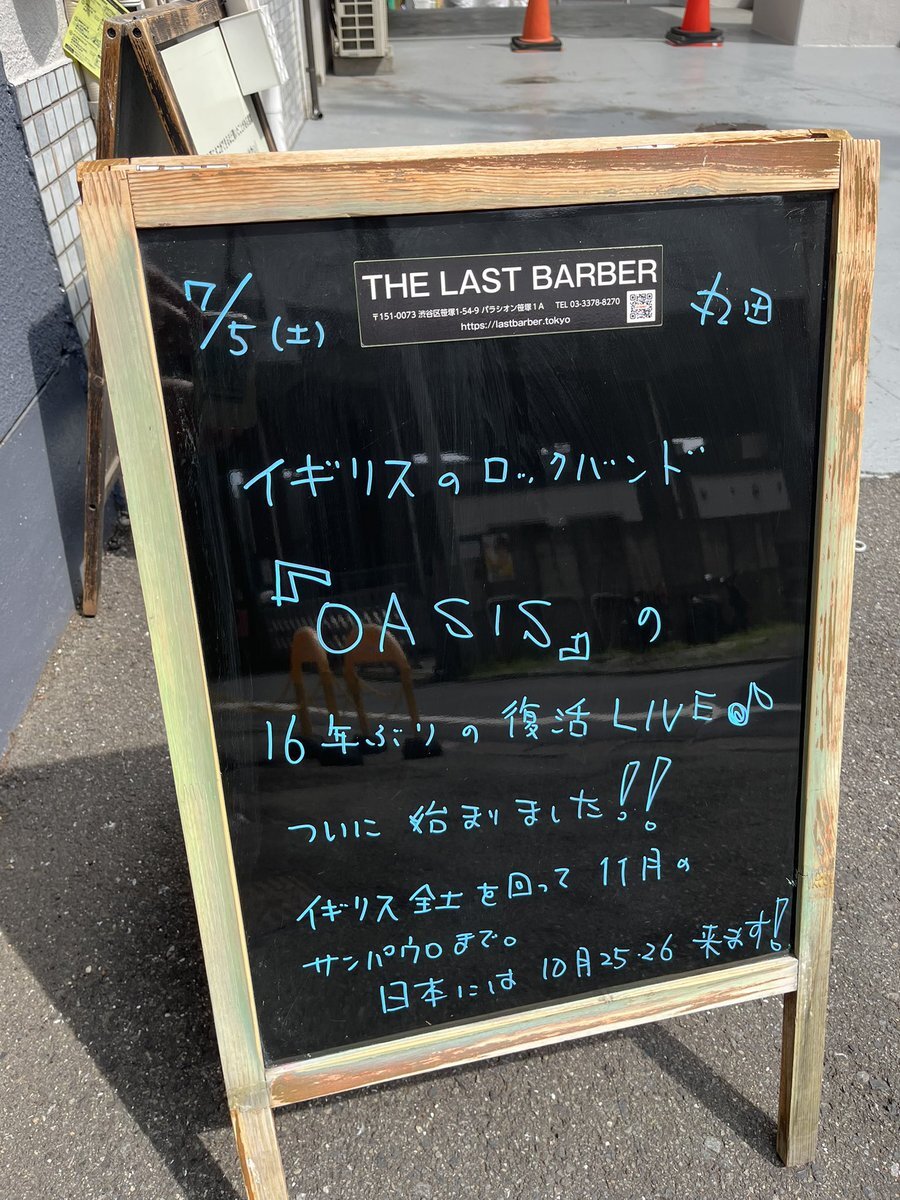 THE LAST BARBER
〒151-0073 渋谷区笹塚1-54-9 パラシオン笹塚1A TEL 03-3378-8270
https://lastbarber.tokyo
7/5(土)
丸田
イギリスのロックバンド
『OASIS』の
16年ぶりの復活LIVE♪
ついに始まりました!!
イギリス全土を回って11月の
サンパウロまで。
日本には10月25・26来ます!